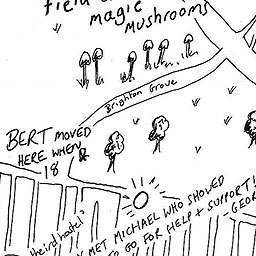 field
magic
mushrooms
Brighton Grove
BERT MOVED
HERE WHEN
18
MET MICHAEL WHO SHOWED
GO FOR HELP + SUPPORT!